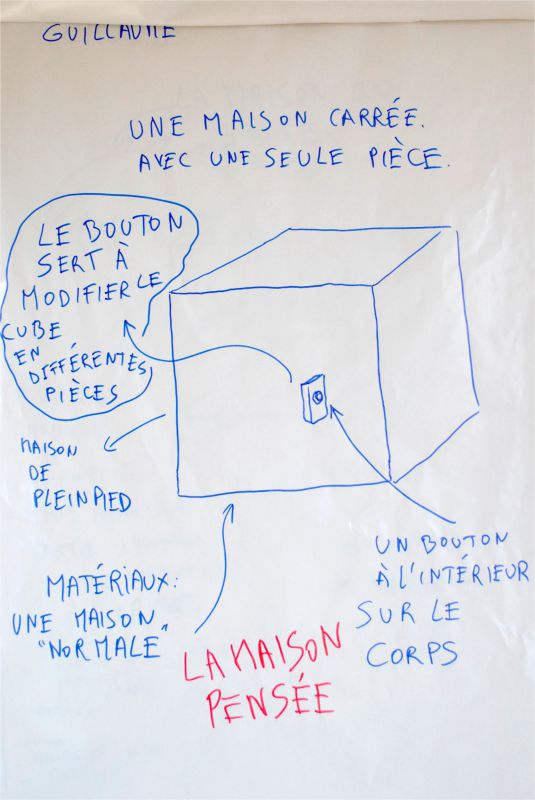 GUILLAUME
UNE MAISON CARRÉE.
AVEC UNE SEULE PIÈCE.
LE BOUTON
SERT À
MODIFIER LE
CUBE
EN
DIFFÉRENTES
PIÈCES
MAISON
DE
PLEIN PIED
MATÉRIAUX:
UNE MAISON
"NORMALE"
UN BOUTON
À L'INTÉRIEUR
SUR LE
CORPS
LA MAISON
PENSÉE